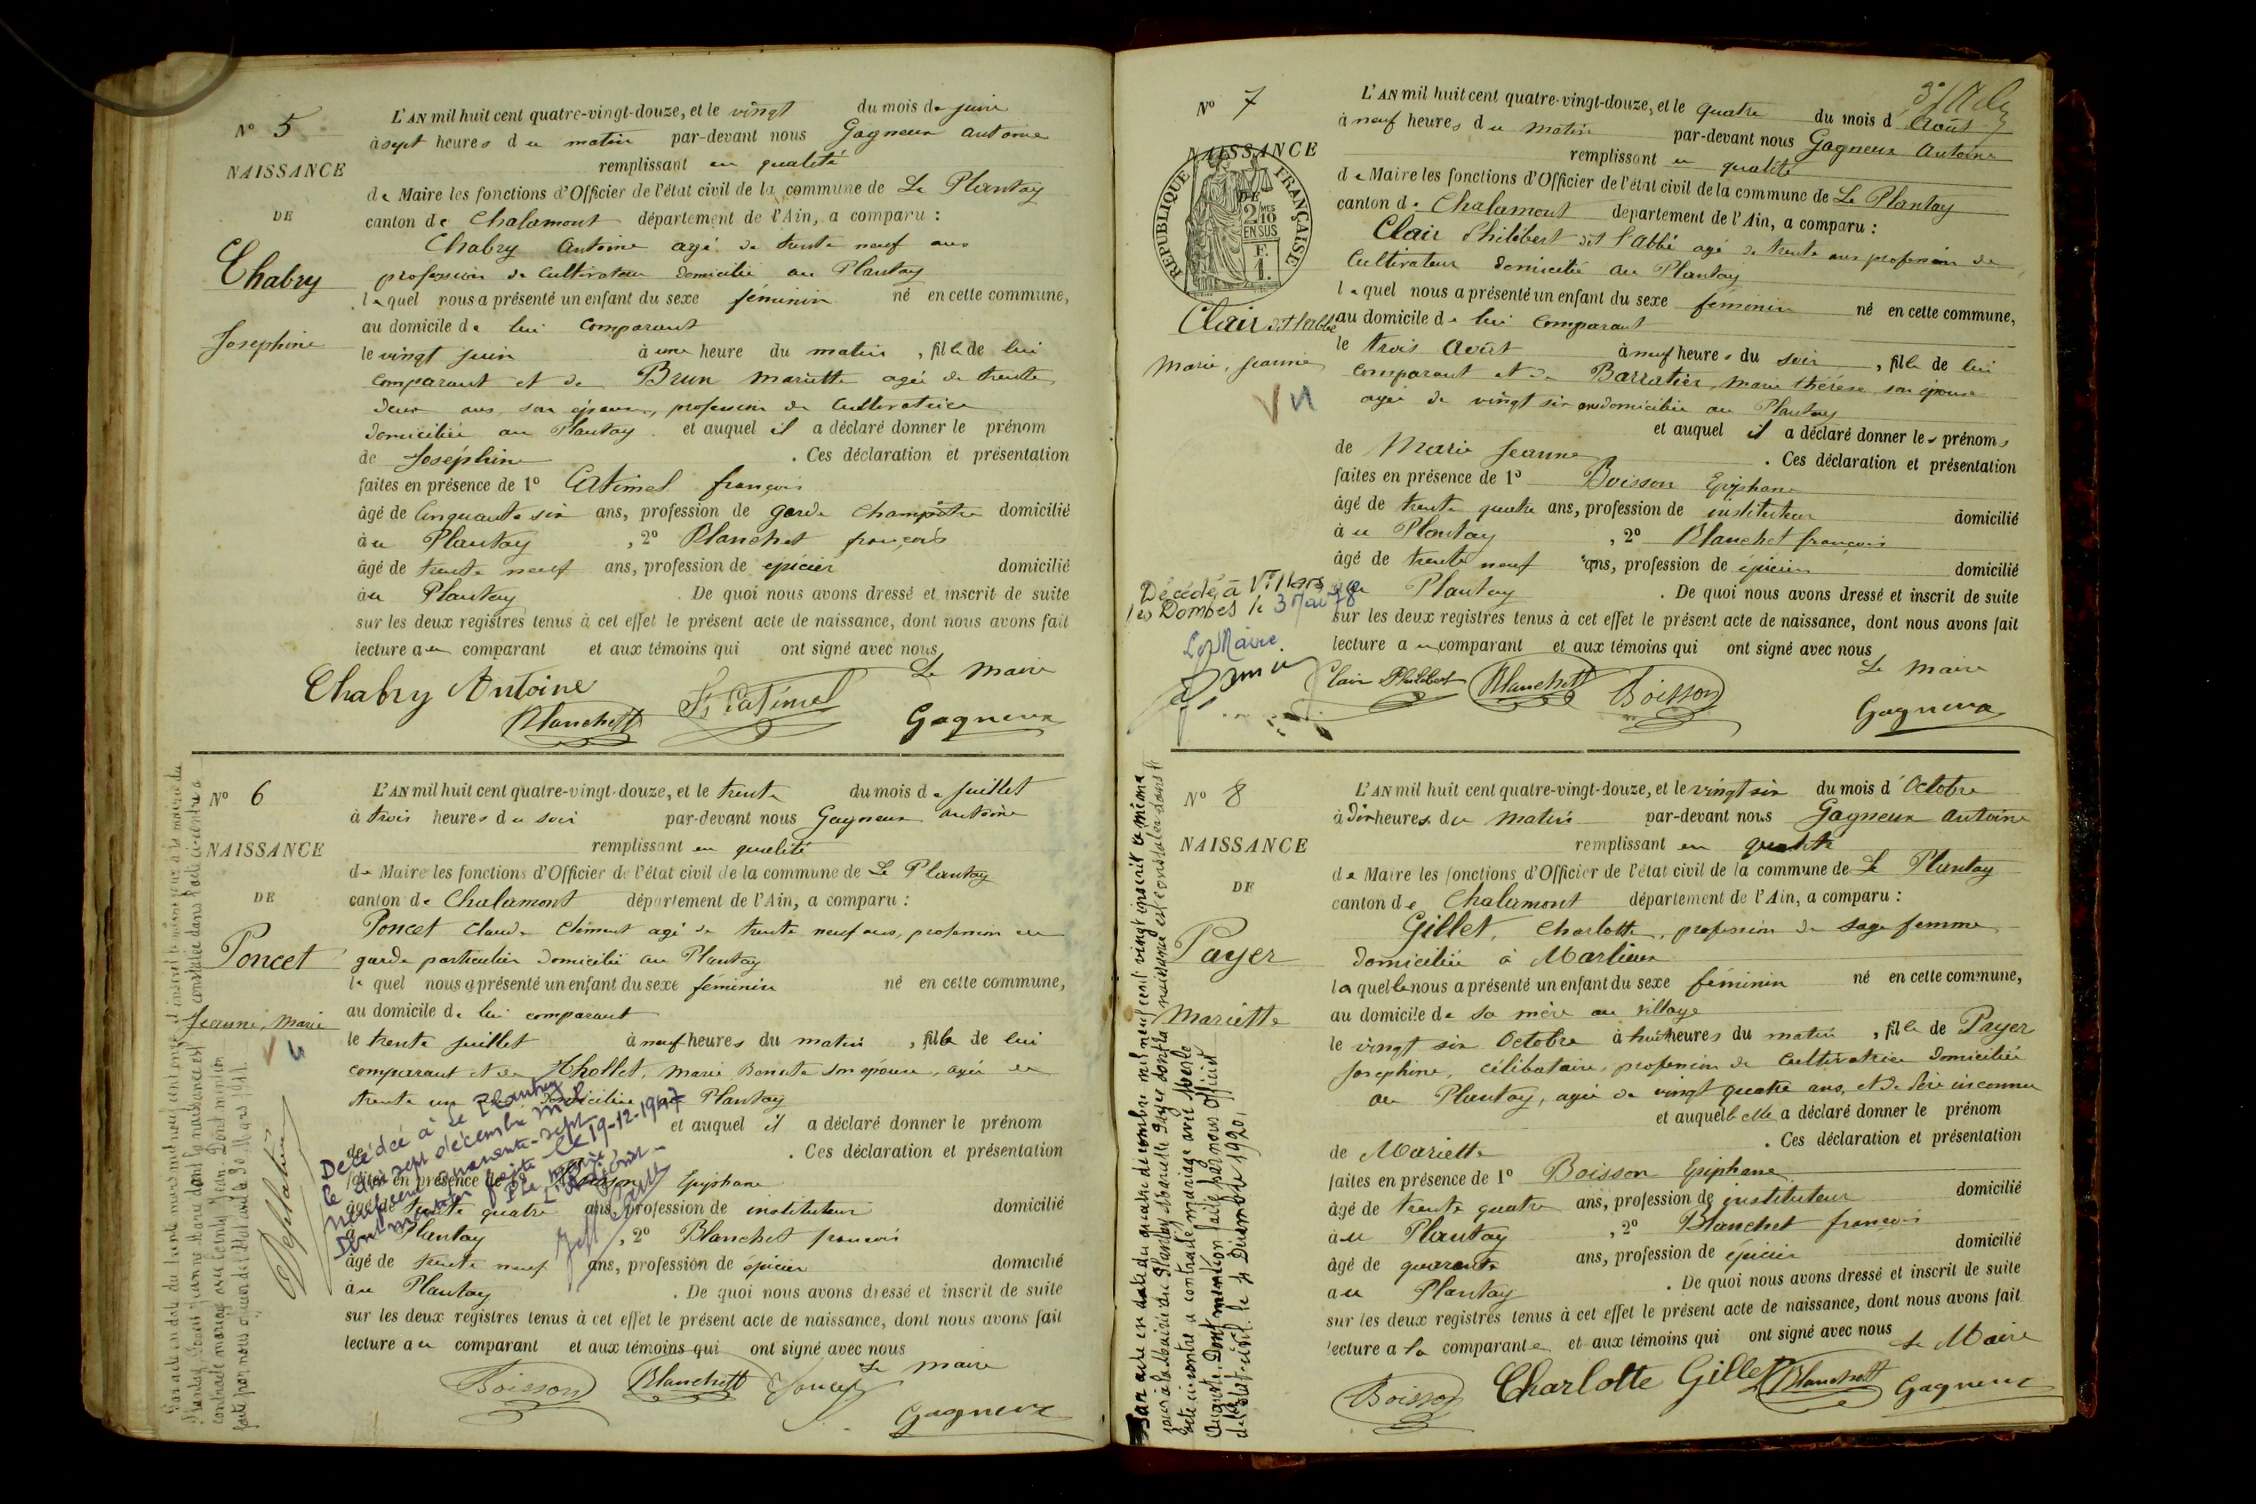 N° 5
NAISSANCE
DE
Chabry
Josephine
L'AN mil huit cent quatre-vingt-douze, et le vingt du mois de juin
à sept heures du matin par-devant nous Gagneux Antoine
remplissant en qualité
de Maire les fonctions d'Officier de l'état civil de la commune de Le Plantay
canton de Chalamont département de l'Ain, a comparu :
Chabry Antoine agé de trente neuf ans
profession de Cultivateur domicilié au Plantay
lequel nous a présenté un enfant du sexe féminin né en cette commune,
au domicile de lui comparant
le vingt juin à une heure du matin, fille de lui
comparant et de Brun Mariette agée de trente
deux ans, son épouse, profession de Cultivatrice
domiciliée au Plantay et auquel il a déclaré donner le prénom
de Joséphine. Ces déclaration et présentation
faites en présence de 1° Catimel françois
âgé de Cinquante six ans, profession de garde champêtre domicilié
au Plantay, 2° Blanchet françois
âgé de trente neuf ans, profession de épicier domicilié
au Plantay. De quoi nous avons dressé et inscrit de suite
sur les deux registres tenus à cet effet le présent acte de naissance, dont nous avons fait
lecture au comparant et aux témoins qui ont signé avec nous
Le Maire
Chabry Antoine Blanchet Catimel Gagneux
N° 6
NAISSANCE
DE
Poncet
Jeanne, Marie
L'AN mil huit cent quatre-vingt-douze, et le trente du mois de juillet
à trois heures du soir par-devant nous Gagneux Antoine
remplissant en qualité
de Maire les fonctions d'Officier de l'état civil de la commune de Le Plantay
canton de Chalamont département de l'Ain, a comparu :
Poncet Claude Clément agé de trente neuf ans, profession de
garde particulier domicilié au Plantay
lequel nous a présenté un enfant du sexe féminin né en cette commune,
au domicile de lui comparant
le trente juillet à neuf heures du matin, fille de lui
comparant et de Thollet, Marie Benoite son épouse, agée de
trente un domiciliée au Plantay
et auquel il a déclaré donner le prénom
de. Ces déclaration et présentation
faites en présence de Boisson Epiphane
âgé de trente quatre ans, profession de instituteur domicilié
au Plantay, 2° Blanchet françois
âgé de trente neuf ans, profession de épicier domicilié
au Plantay. De quoi nous avons dressé et inscrit de suite
sur les deux registres tenus à cet effet le présent acte de naissance, dont nous avons fait
lecture au comparant et aux témoins qui ont signé avec nous
Le Maire
Boisson Blanchet Poncet Gagneux
Décédée à Le Plantay
le dix sept décembre mil
neuf cent quarante-sept
Dont mention faite le 19-12-1947
P. Le Maire
L'Adjoint
N° 7
NAISSANCE
DE
RÉPUBLIQUE FRANÇAISE
2 MES
10
EN SUS
F.
1.
Clair dit l'abbé
Marie, Jeanne
Décédé à Villars
les Dombes le 3 Mai 78
Le Maire
L'AN mil huit cent quatre-vingt-douze, et le quatre du mois d'Août
à neuf heures du matin par-devant nous Gagneux Antoine
remplissant en qualité
de Maire les fonctions d'Officier de l'état civil de la commune de Le Plantay
canton de Chalamont département de l'Ain, a comparu :
Clair Philibert dit l'Abbé agé de trente ans profession de
Cultivateur domicilié au Plantay
lequel nous a présenté un enfant du sexe féminin né en cette commune,
au domicile de lui comparant
le trois Août à neuf heures du soir, fille de lui
comparant et de Barratier, Marie thérèse son épouse
agée de vingt six ans domiciliée au Plantay
et auquel il a déclaré donner les prénoms
de Marie Jeanne. Ces déclaration et présentation
faites en présence de 1° Boisson Epiphane
âgé de trente quatre ans, profession de instituteur domicilié
au Plantay, 2° Blanchet françois
âgé de trente neuf ans, profession de épicier domicilié
au Plantay. De quoi nous avons dressé et inscrit de suite
sur les deux registres tenus à cet effet le présent acte de naissance, dont nous avons fait
lecture au comparant et aux témoins qui ont signé avec nous
Le Maire
Clair Philibert Blanchet Boisson Gagneux
N° 8
NAISSANCE
DE
Payer
Mariette
L'AN mil huit cent quatre-vingt-douze, et le vingt six du mois d'Octobre
à dix heures du matin par-devant nous Gagneux Antoine
remplissant en qualité
de Maire les fonctions d'Officier de l'état civil de la commune de Le Plantay
canton de Chalamont département de l'Ain, a comparu :
Gillet, Charlotte, profession de sage femme
domiciliée à Marlieux
laquelle nous a présenté un enfant du sexe féminin né en cette commune,
au domicile de sa mère au village
le vingt six Octobre à huit heures du matin, fille de Payer
Josephine, célibataire, profession de Cultivatrice domiciliée
au Plantay, agée de vingt quatre ans, et de Père inconnu
et auquel elle a déclaré donner le prénom
de Mariette. Ces déclaration et présentation
faites en présence de 1° Boisson Epiphane
âgé de trente quatre ans, profession de instituteur domicilié
au Plantay, 2° Blanchet françois
âgé de quarante ans, profession de épicier domicilié
au Plantay. De quoi nous avons dressé et inscrit de suite
sur les deux registres tenus à cet effet le présent acte de naissance, dont nous avons fait
lecture a la comparante et aux témoins qui ont signé avec nous
Le Maire
Boisson Charlotte Gillet Blanchet Gagneux